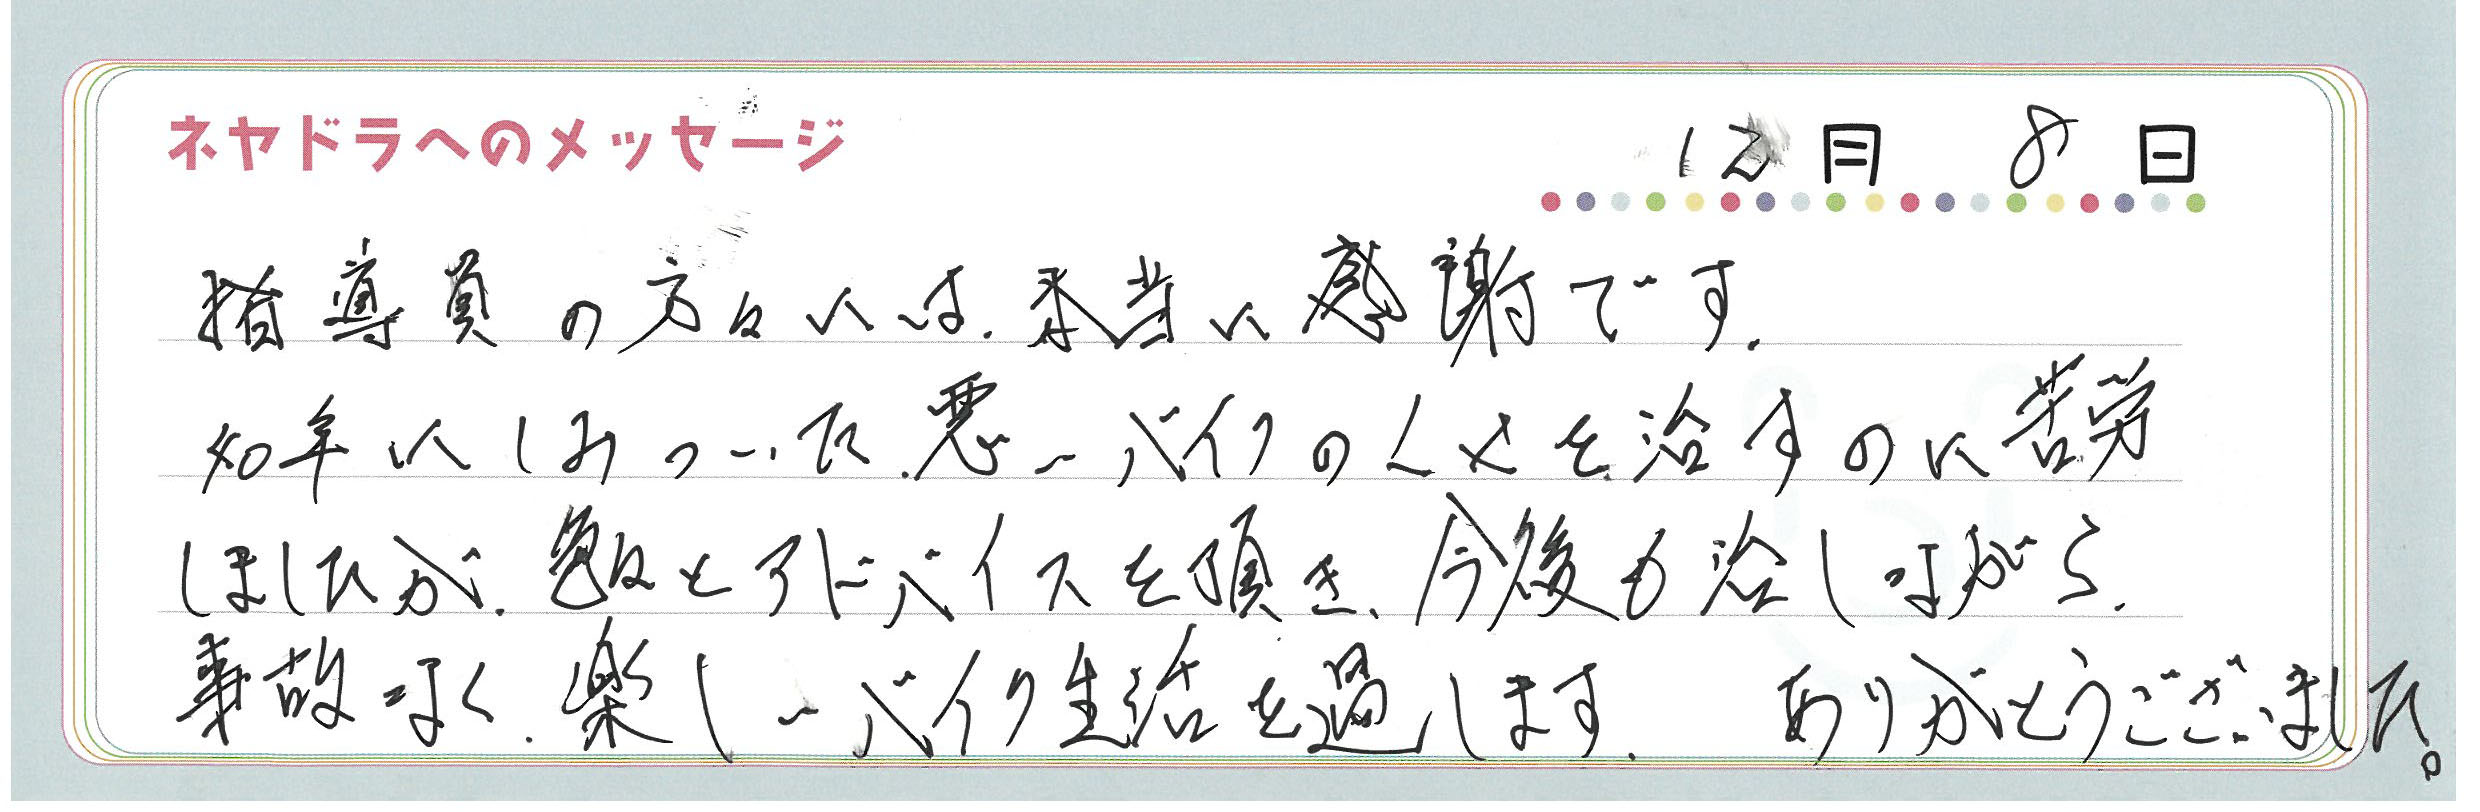 ネヤドラへのメッセージ
12月 8日
指導員の方々には、本当に感謝です。
40年にしみついた、悪いバイクのくせを治すのに苦労
しましたが、色々とアドバイスを頂き、今後も治しながら、
事故なく、楽しいバイク生活を過します。 ありがとうございました。